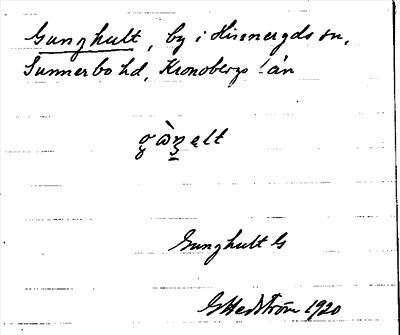 Gunghult, by i Hinnergds sn,
Sunnerbo hd, Kronobergs län
Gunghult G
G Hedström 1920